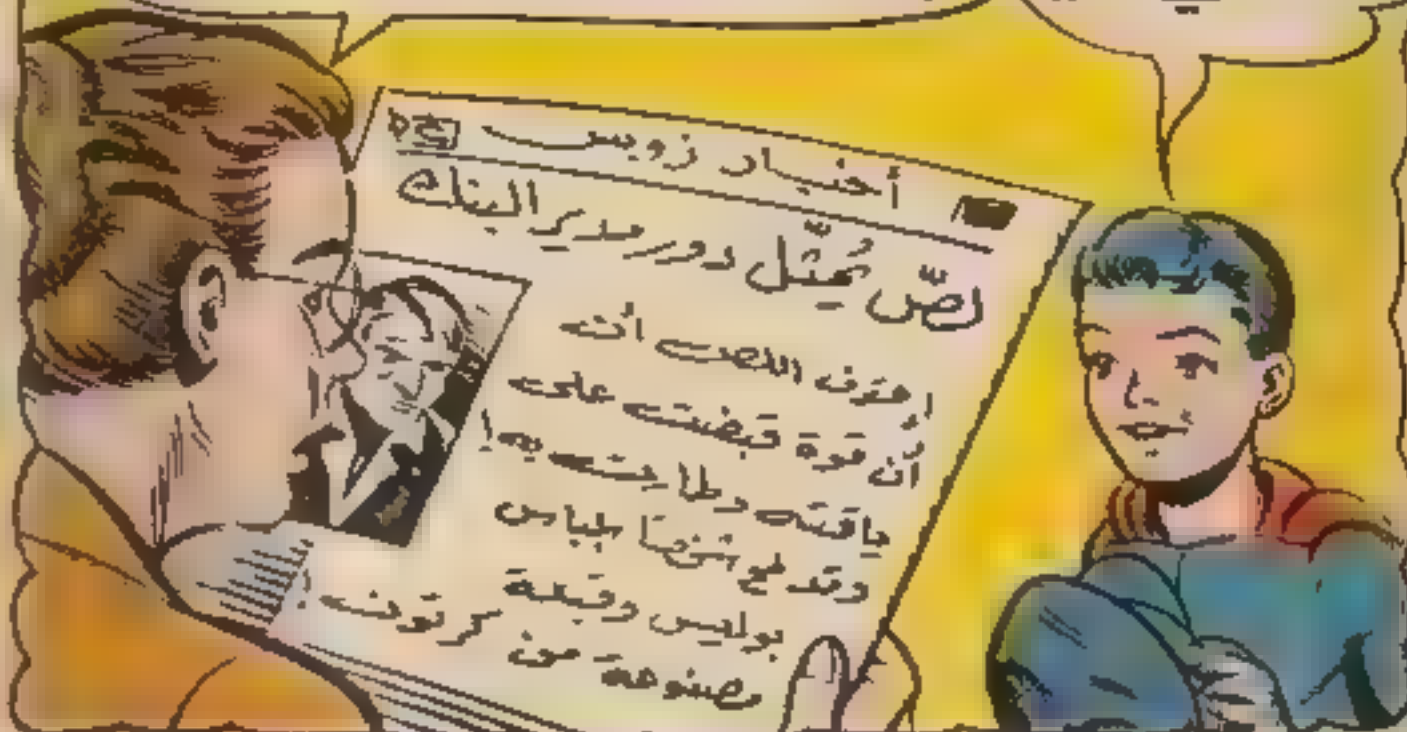 أخبار زويس
لصّ يُمثّل دور مدير البنك
اعترف اللص ان
أن قوة قبضت على
ياقته وطارت به!
وقد لمح شخصًا بلباس
بوليس وقبعة
مصنوعة من كرتون!